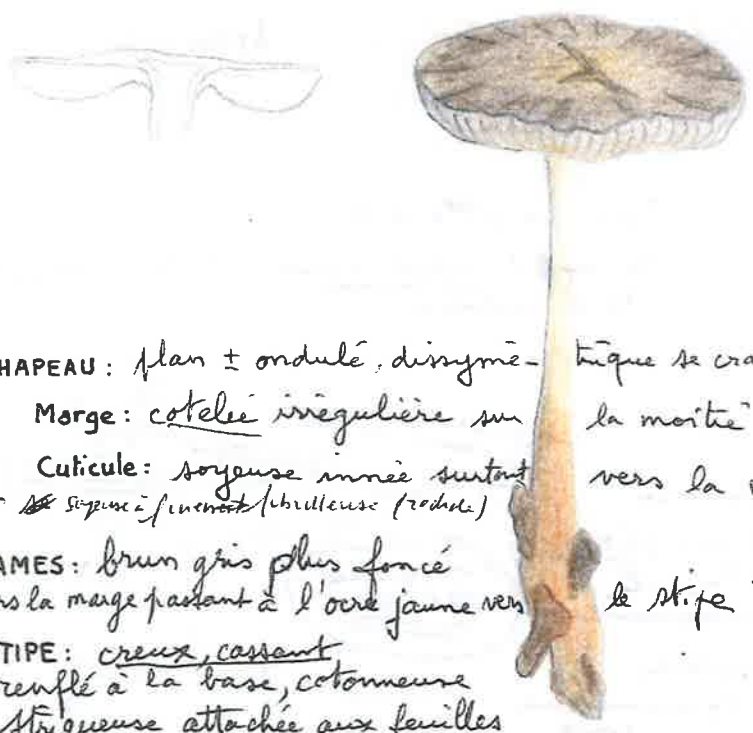 HAPEAU : plan ± ondulé, dissymé- trique se cra
Marge : cotelée irrégulière sur la moitié
Cuticule : soyeuse innée surtout vers la
soyeuse à finement fibrilleuse (radiale)
AMES : brun gris plus foncé
rs la marge passant à l'ocre jaune vers le stipe
TIPE : creux, cassant
renflé à la base, cotonneuse
striqueuse attachée aux feuilles